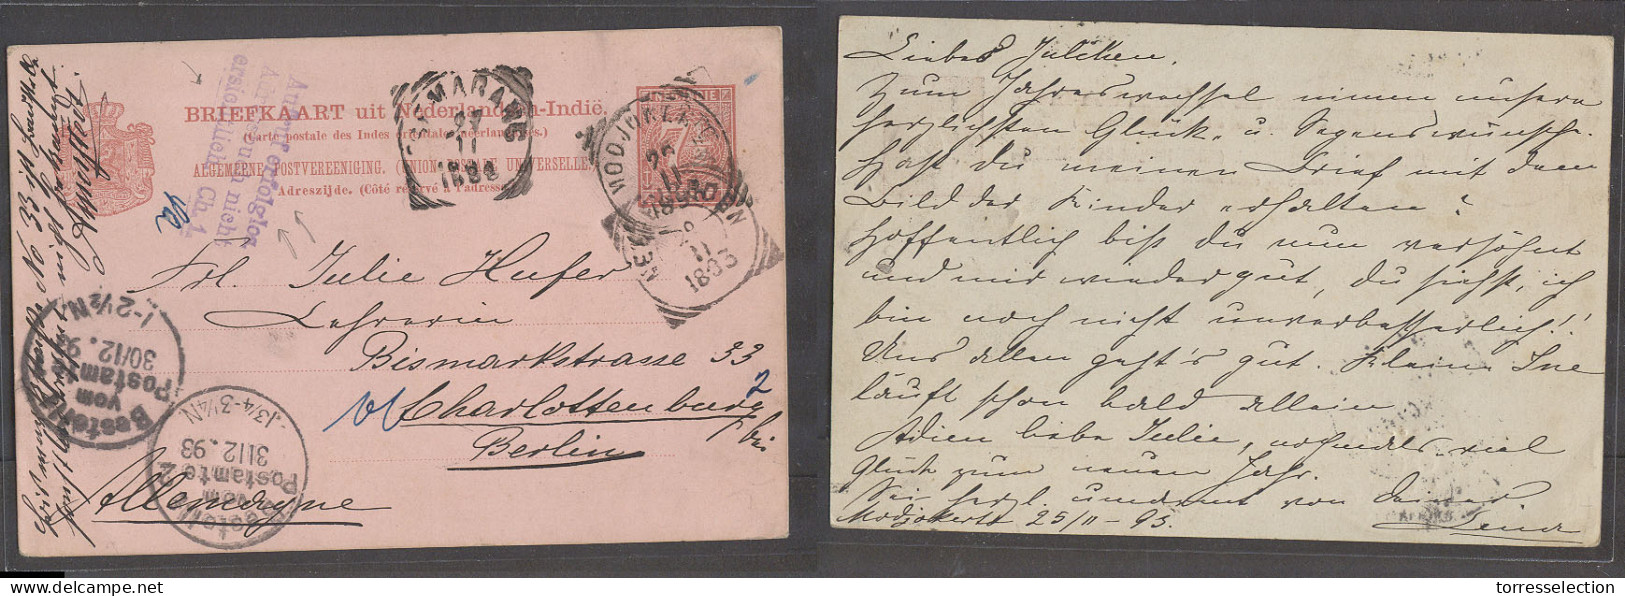 BRIEFKAART uit Nederlandsch-Indië.
(Carte postale des Indes orientales néerlandaises.)
ALGEMEENE POSTVEREENIGING. (UNION POSTALE UNIVERSELLE.)
Adreszijde. (Côté réservé à l'adresse.)
SEMARANG
27
11
1893
MODJOKERTO
26
11
1893
WELTEVREDEN
11
1893
Ausserer
ersichtlich Ch. 1.
nicht
Frl. Julie Hufer
Lehrerin
Bismarkstrasse 33
Charlottenburg 2
bei
Berlin
Allemagne
Bestellt
vom
Postamte
30/12. 93
1-2½N.
Bestellt
vom
Postamte 2
31/2. 93
J3/4-3¼N
Liebes Julchen,
Zum Jahreswechsel nimm unsere
herzlichsten Glück- u. Segenswünsche.
Hast du meinen Brief mit dem
Bild der Kinder erhalten?
Hoffentlich bist du nun versöhnt
und mir wieder gut, du siehst, ich
bin noch nicht unverbesserlich!!
Uns allen geht's gut. Klein Ine
läuft schon bald allein
Adieu liebe Julie, nochmals viel
Glück zum neuen Jahr.
Sei herzl. umarmt von Deiner
Modjokerto 25/11-93.
torresselection